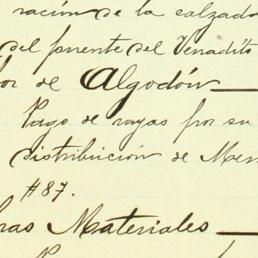 ración de la calzada
del puente del Venadito
or de Algodón
Pago de rayas por su
distribuición de Mer
#87.
ras Materiales